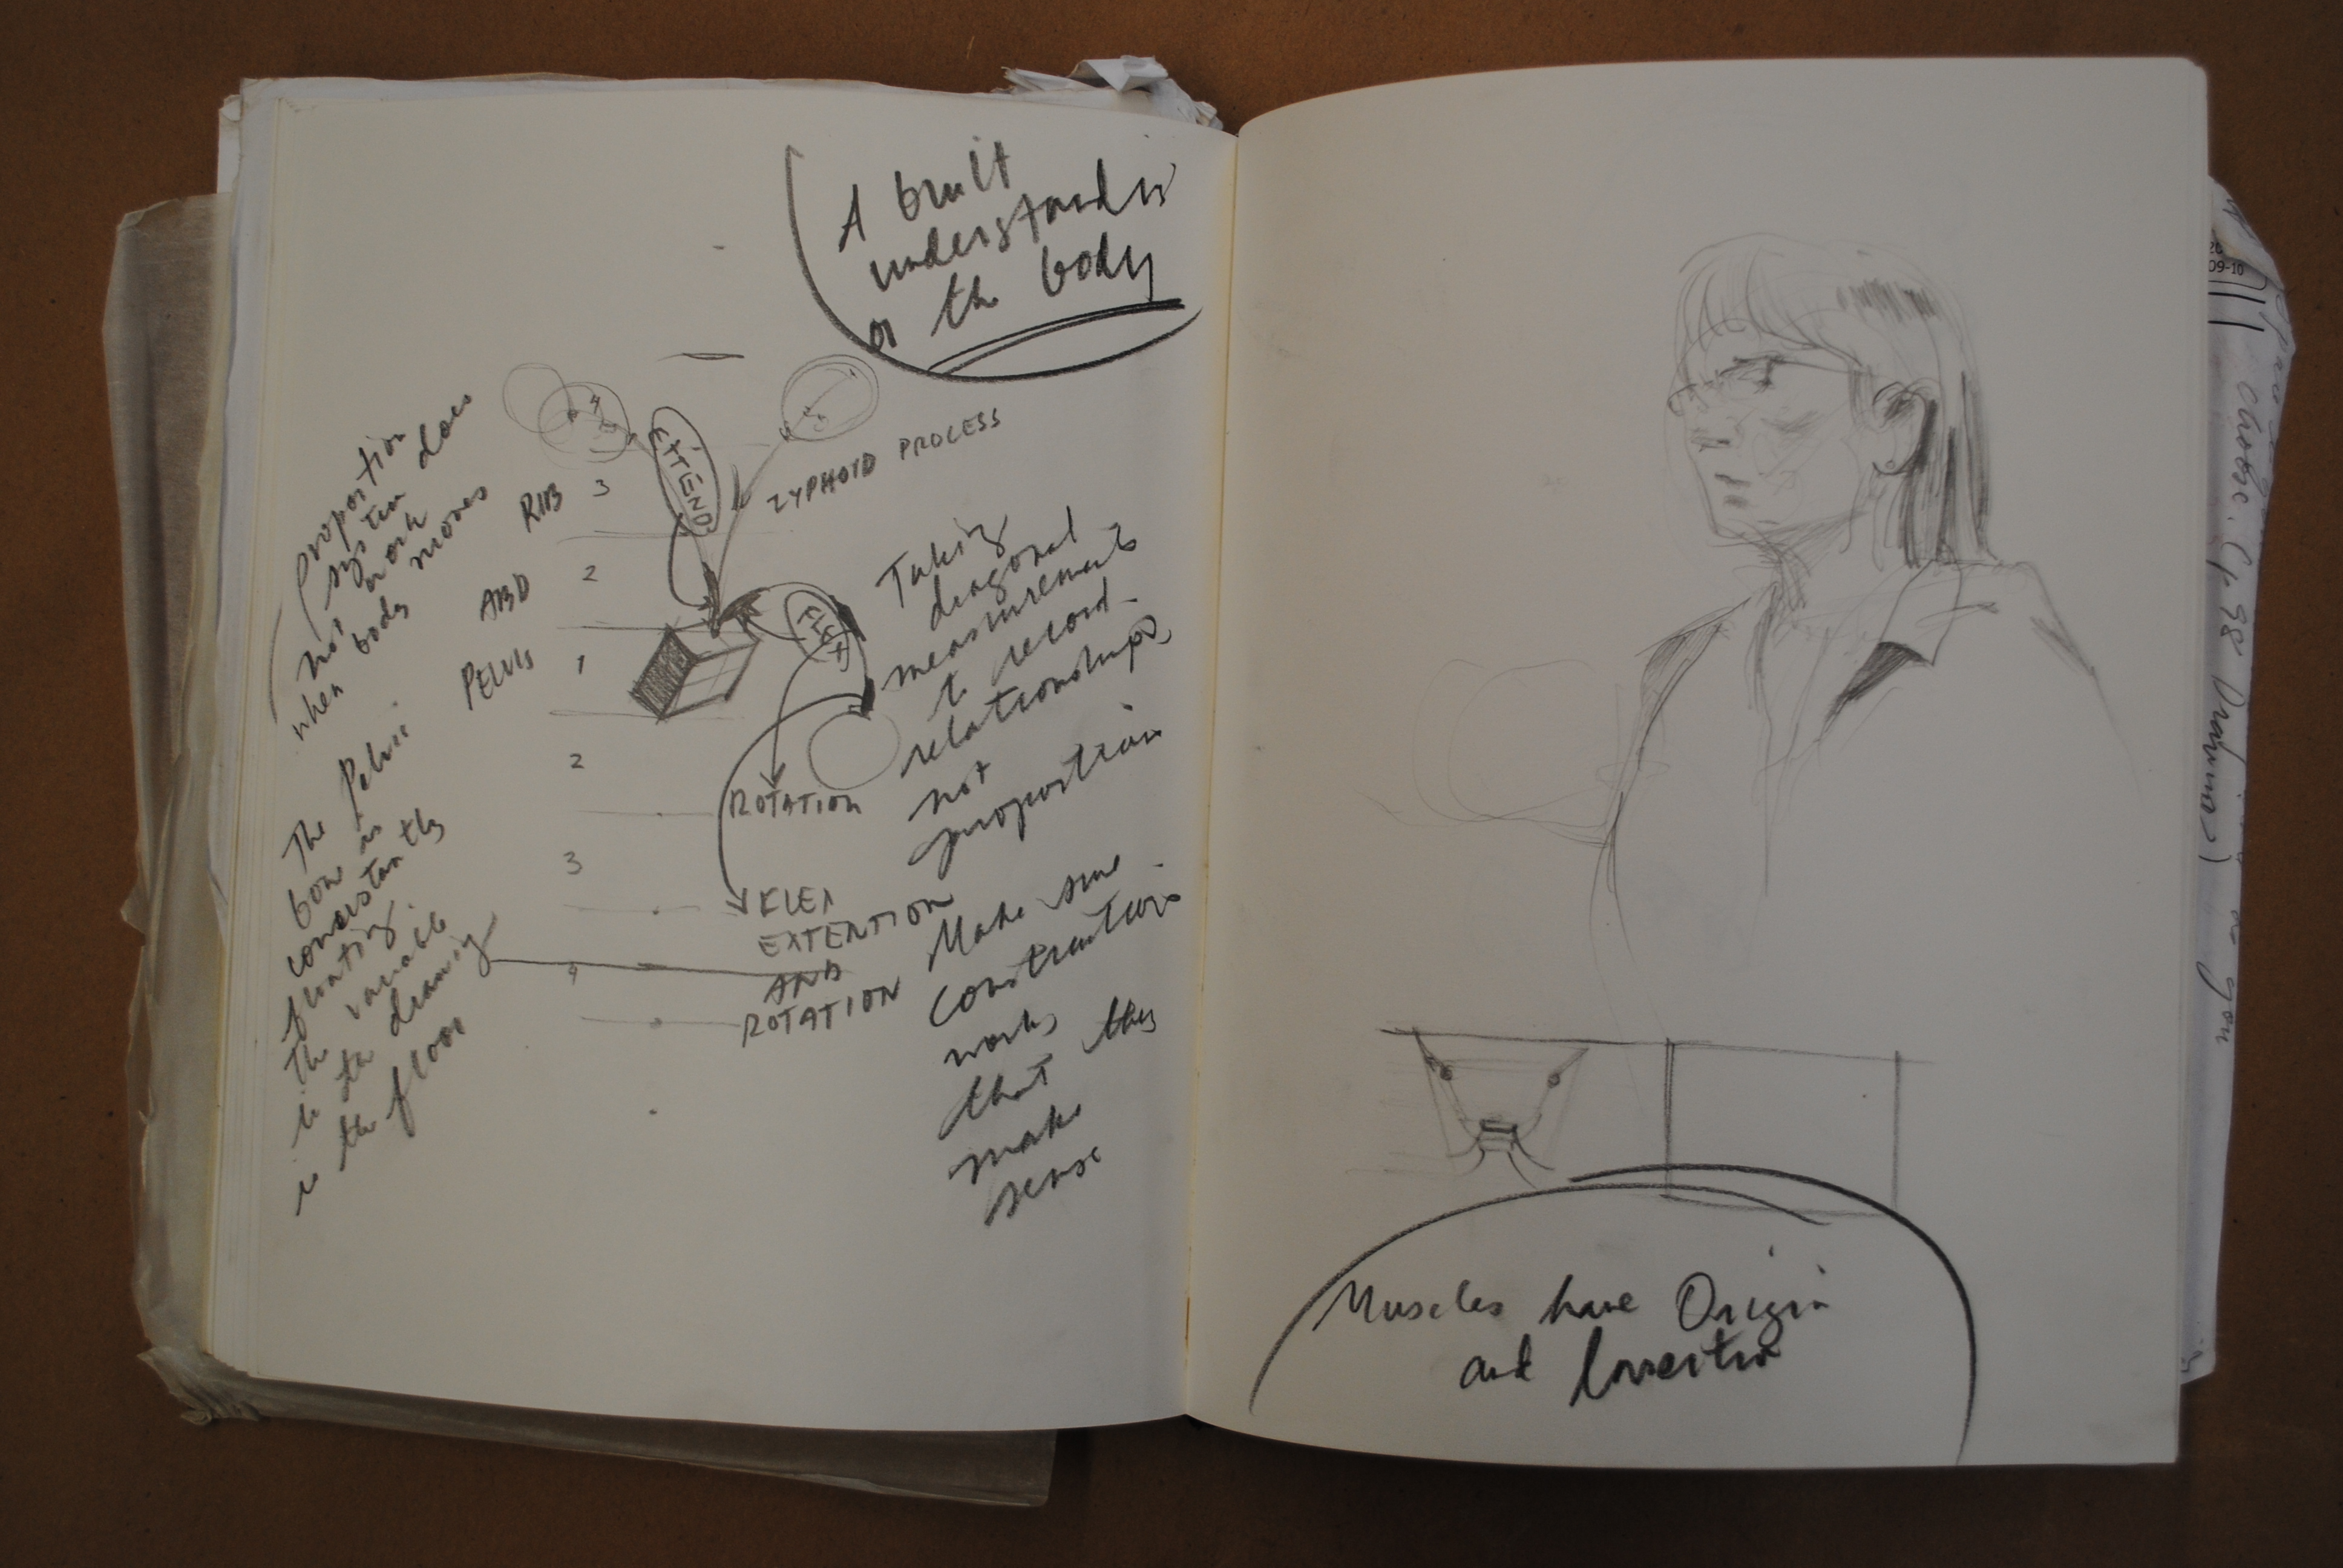 A built
understandin
of the body
proportion
system does
not work
when body moves
RIB
ABD
PELVIS
4
3
2
1
2
3
4
EXTEND
ZYPHOID PROCESS
FLEX
ROTATION
FLEX
EXTENTION
AND
ROTATION
The Pelvic
bone is
constantly
floating.
The variable
is the drawing
is the floor
Taking
diagonal
measurements
to record
relationships,
not
proportion
Make sure
construction
works
that they
make
sense
Muscles have Origin
and Insertion
09-10
choose. (p. 38 Drawing)
you